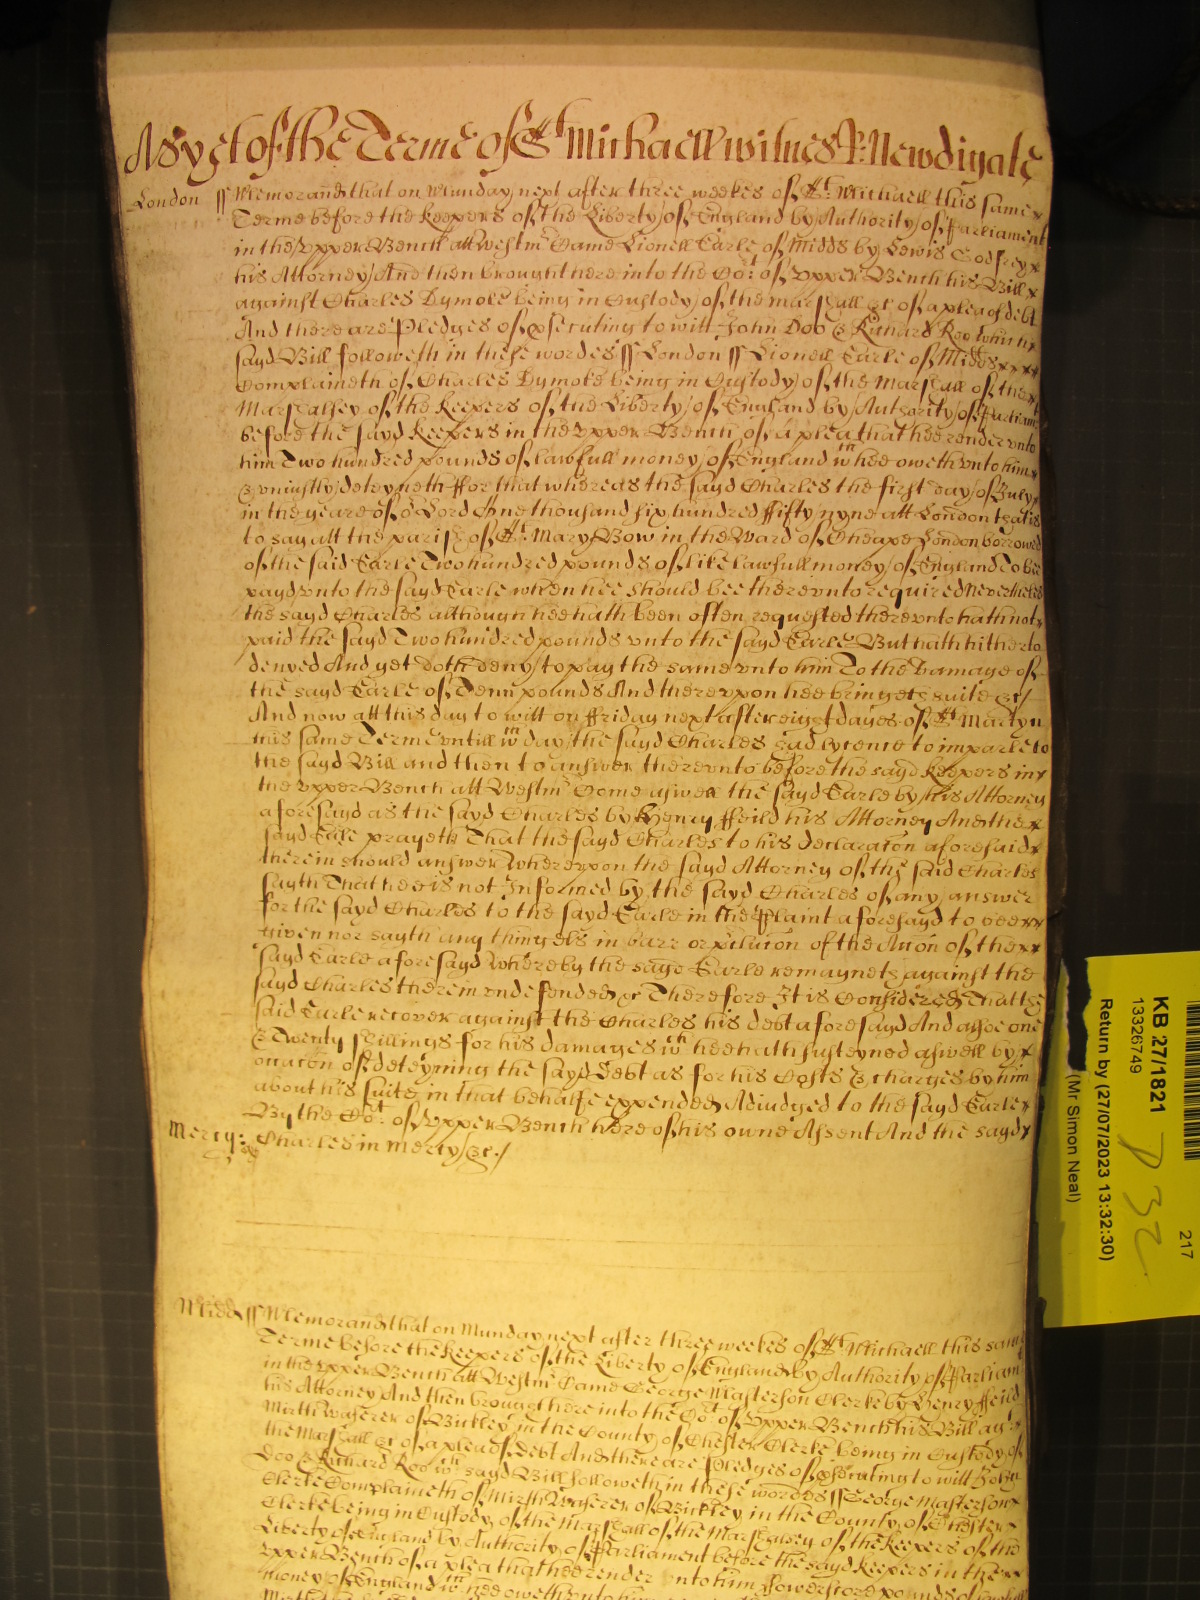 As yet of the Terme of St Michaell witnes R: Newdigate
London ss Memorand that on Munday next after three weekes of St Michaell this same
Terme before the Keepers of the Liberty of England by Authority of Parliament
in the Vpper Bench att Westmr Came Lionell Earle of Midds by Lewis Godfrey
his Attorney And then brought here into the Cort of Vpper Bench his Bill
against Charles Dymoke being in Custody of the marshall &c of a plea of debt
And there are Pledges of prosecuting to witt John Doo & Richard Roo which
sayd Bill followeth in these wordes ss London ss Lionell Earle of Midds
Complaineth of Charles Dymoke being in Custody of the Marshall of the
Marshalsey of the Keepers of the Liberty of England by Authority of Parliamt
before the sayd Keepers in the Vpper Bench of a plea that hee render vnto
him Two hundred pounds of lawfull money of England wch hee oweth vnto him
& vniustly deteyneth ffor that whereas the sayd Charles the first day of July
in the yeare of or Lord One thousand six hundred ffifty nyne att London that is
to say att the parish of St Mary Bow in the Ward of Cheape London borrowed
of the said Earle Two hundred pounds of like lawfull money of England To bee
payd vnto the sayd Earle when hee should bee therevnto required Neverthelesse
the sayd Charles although hee hath been often requested therevnto hath not
paid the sayd Two hundred pounds vnto the sayd Earle But hath hitherto
denyed And yet doth deny to pay the same vnto him To the damage of
the sayd Earle of Tenn pounds And therevpon hee bringeth suite &c
And now att this day to witt on ffriday next after eight dayes of St Martyn
this same Terme vntill wch day the sayd Charles had lycence to imparle to
the sayd Bill and then to answer therevnto before the sayd Keepers in
the Vpper Bench att Westmr Come aswell the sayd Earle by his Attorney
aforesayd as the sayd Charles by Henry ffeild his Attorney And the
sayd Earle prayeth That the sayd Charles to his declaracon aforesaid
therein should answer Wherevpon the sayd Attorney of the said Charles
sayth That hee is not Informed by the sayd Charles of any answer
for the sayd Charles to the sayd Earle in the plaint aforesayd to bee
given nor sayth any thing els in barr or preclucon of the Accon of the
sayd Earle aforesayd Whereby the sayd Earle remayneth against the
sayd Charles therein vndefended &c Therefore It is Considered That the
said Earle recover against the Charles his debt aforesayd And alsoe one
& Twenty shillings for his damages wch hee hath susteyned aswell by
occacon of deteyning the sayd Debt as for his Costs & charges by him
about his suite in that behalfe expended Adiudged to the sayd Earle
By the Cort of Vpper Bench here of his owne Assent And the sayd
Mercy: Charles in mercy &c
Midd ss Memorand that on Munday next after three weekes of St Michaell this same
Terme before the Keepers of the Liberty of England by Authority of Parliamt
in the Vpper Bench att Westmr Came George Masterson Clerke by Henry ffeild
his Attorney And then brought here into the Cort of Vpper Bench his Bill agt
Mirth Waferer of Bickley in the County of Chester Clerke being in Custody of
the Marshall &c of a plea of debt And there are Pledges of prosecuting to witt John
Doo & Richard Roo wch sayd Bill followeth in these words ss George Masterson
Clerke Complaineth of Mirth Waferer of Bickley in the County of Chester
Clerke being in Custody of the Marshall of the Marshalsey of the Keepers of the
Liberty of England by Authority of Parliament before the sayd Keepers in the
Vpper Bench of a plea that hee render vnto him ffowerscore pounds of lawfull
money of England wch hee oweth vnto him
KB 27/1821
13326749
Return by (27/07/2023 13:32:30)
(Mr Simon Neal)
217
D 32